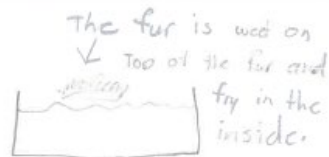 The fur is wed on
Top of the fur and
fry in the
inside.